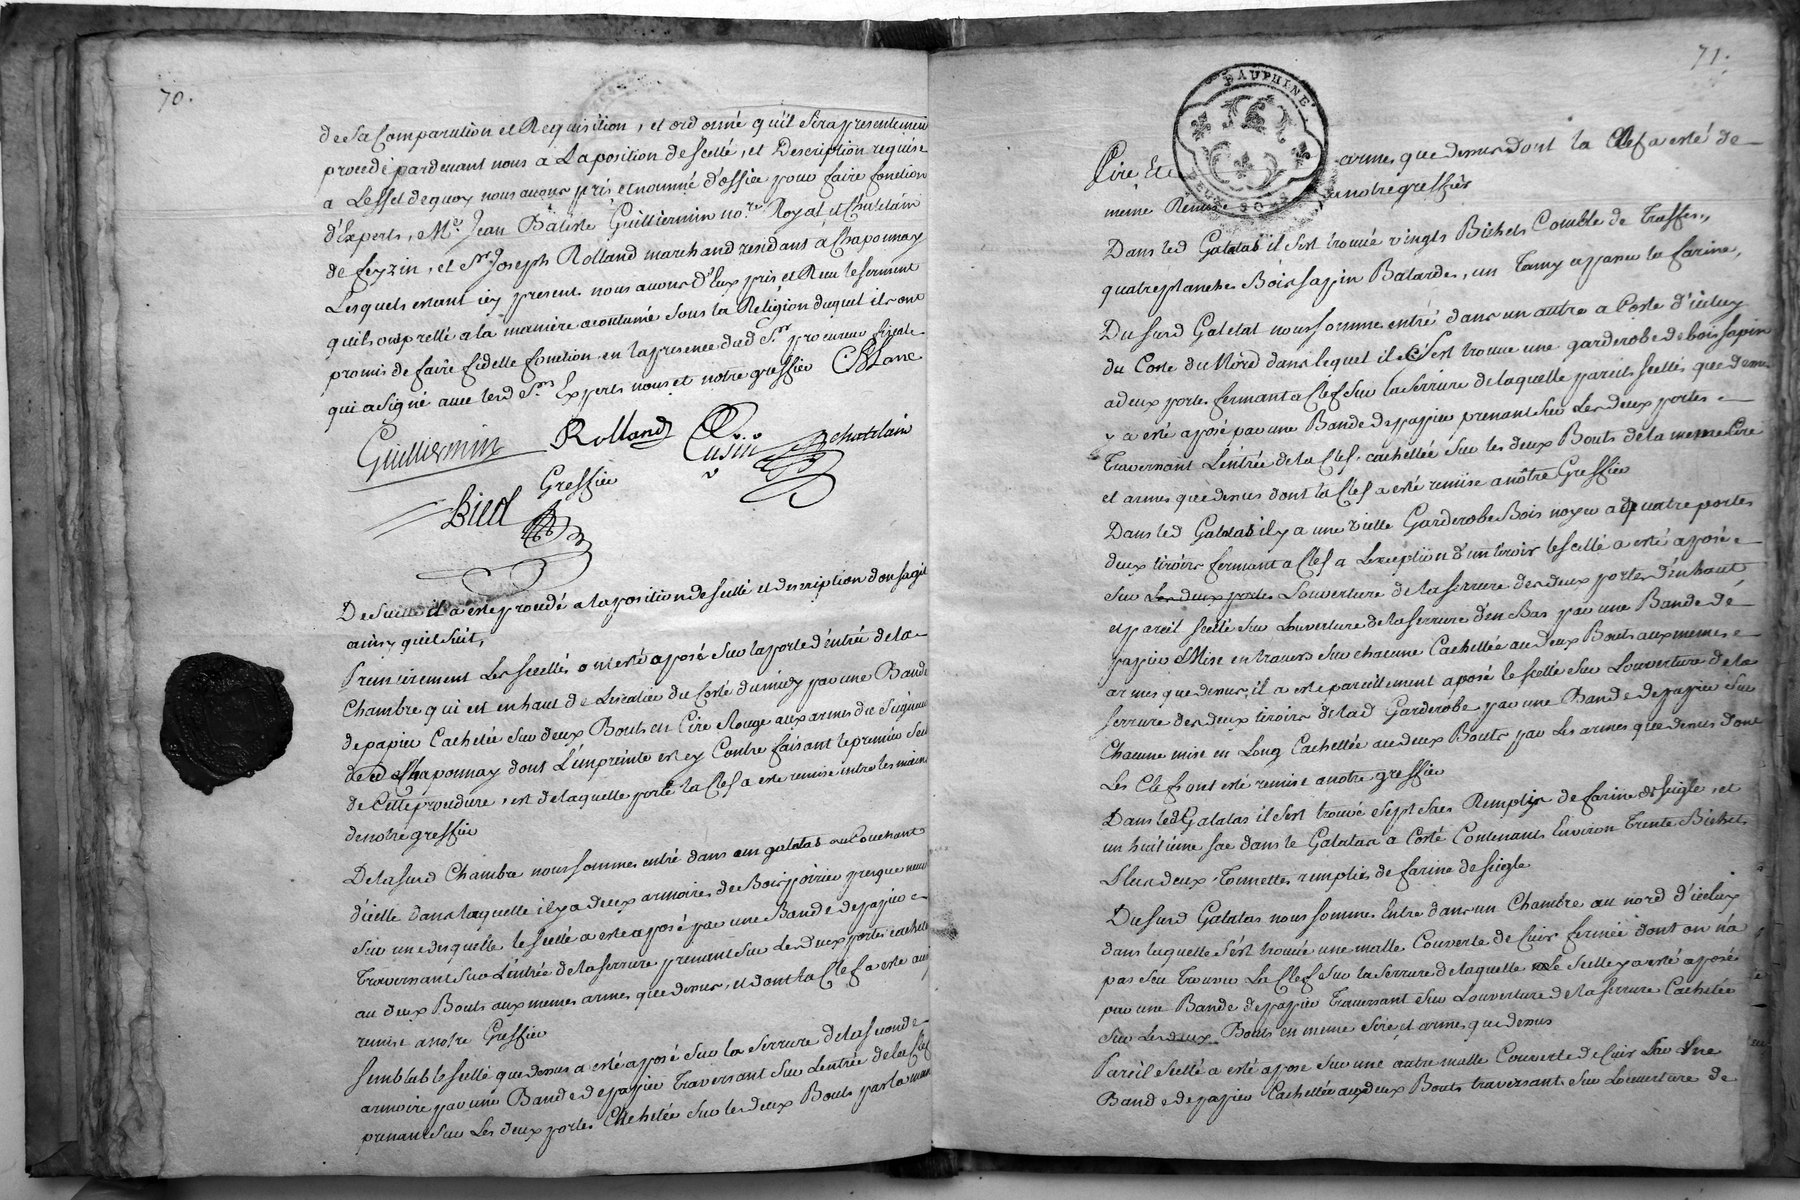 70.
de sa Comparution et Requisition, et ordonné qu'il sera presentement
procedé pardevant nous a Laposition de scellé, et Description requise
a Leffet de quoy nous avons pris et nommé d'office pour faire fonction
d'Experts, Me. Jean Batiste Guilliermin nore. Royal et Chatelain
de feyzin, et Sr. Joseph Rolland marchand residant à Chaponnay
Lesquels estant icy present nous avons d'Eux pris et Reçu le serment
qu'ils ont presté a la manière acoutumé sous la Religion duquel ils ont
promis de faire fidelle fonction en la presence dud. Sr. procureur fiscale
qui a signé avec lesd Srs Experts nous et notre greffier
Guilliermin Rolland Cusin chatelain
Bied Greffier
De suitte il a esté procedé a la position de scellé et description dont sagit
ainsy qu'il suit,
Premierement Les scellés ont esté aposé sur la porte d'entrée de la
Chambre qui est en haut de Lescalier du Costé du midy par une Bande
de papier Cachetée sur deux Bouts en Cire Rouge aux armes du Seigneur
de Chaponnay dont L'empreinte est cy Contre faisant le premier seel
de Cette procedure, et de laquelle porte la Clef a esté remise entre les mains
de notre greffier
De la susd Chambre nous sommes entré dans un galatas au Couchant
d'icelle dans laquelle il y a deux armoires de Bois poirier presque neuve
sur une desquelle le scellé a esté aposé par une Bande de papier
Traversant sur L'entrée de la serrure prenant sur Les deux portes cachetté
au deux Bouts aux memes armes que dessus, et dont la Clef a esté aussi
remise a notre Greffier
semblable scellé que dessus a esté aposé sur la serrure de la seconde
armoire par une Bande de papier Traversant sur Lentrée de la Clef
prenant sur Les deux portes Cachetée sur les deux Bouts par la meme
71.
DAUPHINE
DEUX SOLS
Cire et armes que dessus dont la Clef a esté de
meme Remise a notre greffier
Dans led Galatas il sest trouvé vingts Bichets Comble de Traffes,
quatre planches Bois sappin Batardes, un Tamy a passer la farine,
Du susd Galatat nous somme entré dans un autre a Coste d'iceluy
du Coste du Nord dans lequel il s'est trouve une garderobe de bois sapin
a deux portes fermant a Clef sur la serrure de laquelle pareils scellés que dessus
y a esté aposé par une Bande de papier prenant sur Les deux portes
Traversant L'entrée de la Clef, cachettée sur les deux Bouts de la meme Cire
et armes que dessus dont la Clef a esté remise a nôtre Greffier
Dans led Galatas il y a une vielle Garderobe Bois noyer a quatre portes
deux tiroirs fermant a Clef a Lexception d'un tiroir le scellé a esté aposé
sur les deux portes Louverture de la serrure des deux portes d'enhaut
et pareil scellé sur Louverture de la serrure d'en Bas par une Bande de
papier Mise en travers sur chacune Cachettée au deux Bouts aux memes
armes que dessus, il a esté pareillement aposé le scellé sur Louverture de la
serrure des deux tiroirs de lad Garderobe par une Bande de papier sur
Chacune mise en Long Cachettée au deux Bouts par Les armes que dessus dont
Les Clefs ont esté remise a notre greffier
Dans led Galatas il s'est trouvé sept sacs Remplis de farine de seigle, et
un huitième sac dans le Galatas a Costé Contenants Environ Trente Bichets
Plus deux Tonnettes remplies de farine de seigle
Du susd Galatas nous sommes Entré dans un Chambre au nord d'icelux
dans laquelle s'est trouvée une malle Couverte de Cuir fermée dont on n'a
pas seu Trouver La Clef sur la serrure de laquelle Le scellé y a esté aposé
par une Bande de papier Traversant sur Louverture de la serrure Cachetée
sur Les deux Bouts en meme Sire et armes que dessus
Pareil scellé a esté aposé sur une autre malle Couverte de Cuir par une
Bande de papier Cachettée aux deux Bouts traversant sur Louverture de